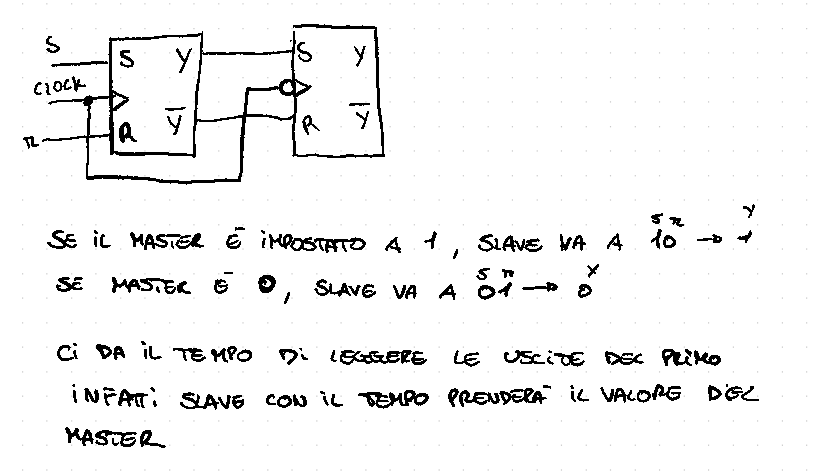 S
S Y
S Y
CLOCK
Y̅
Y̅
r
R
R
SE IL MASTER È IMPOSTATO A 1, SLAVE VA A 10 → 1
s r
Y
SE MASTER È 0, SLAVE VA A 01 → 0
s r
Y
CI DA IL TEMPO DI LEGGERE LE USCITE DEL PRIMO
INFATTI SLAVE CON IL TEMPO PRENDERÀ IL VALORE DEL
MASTER